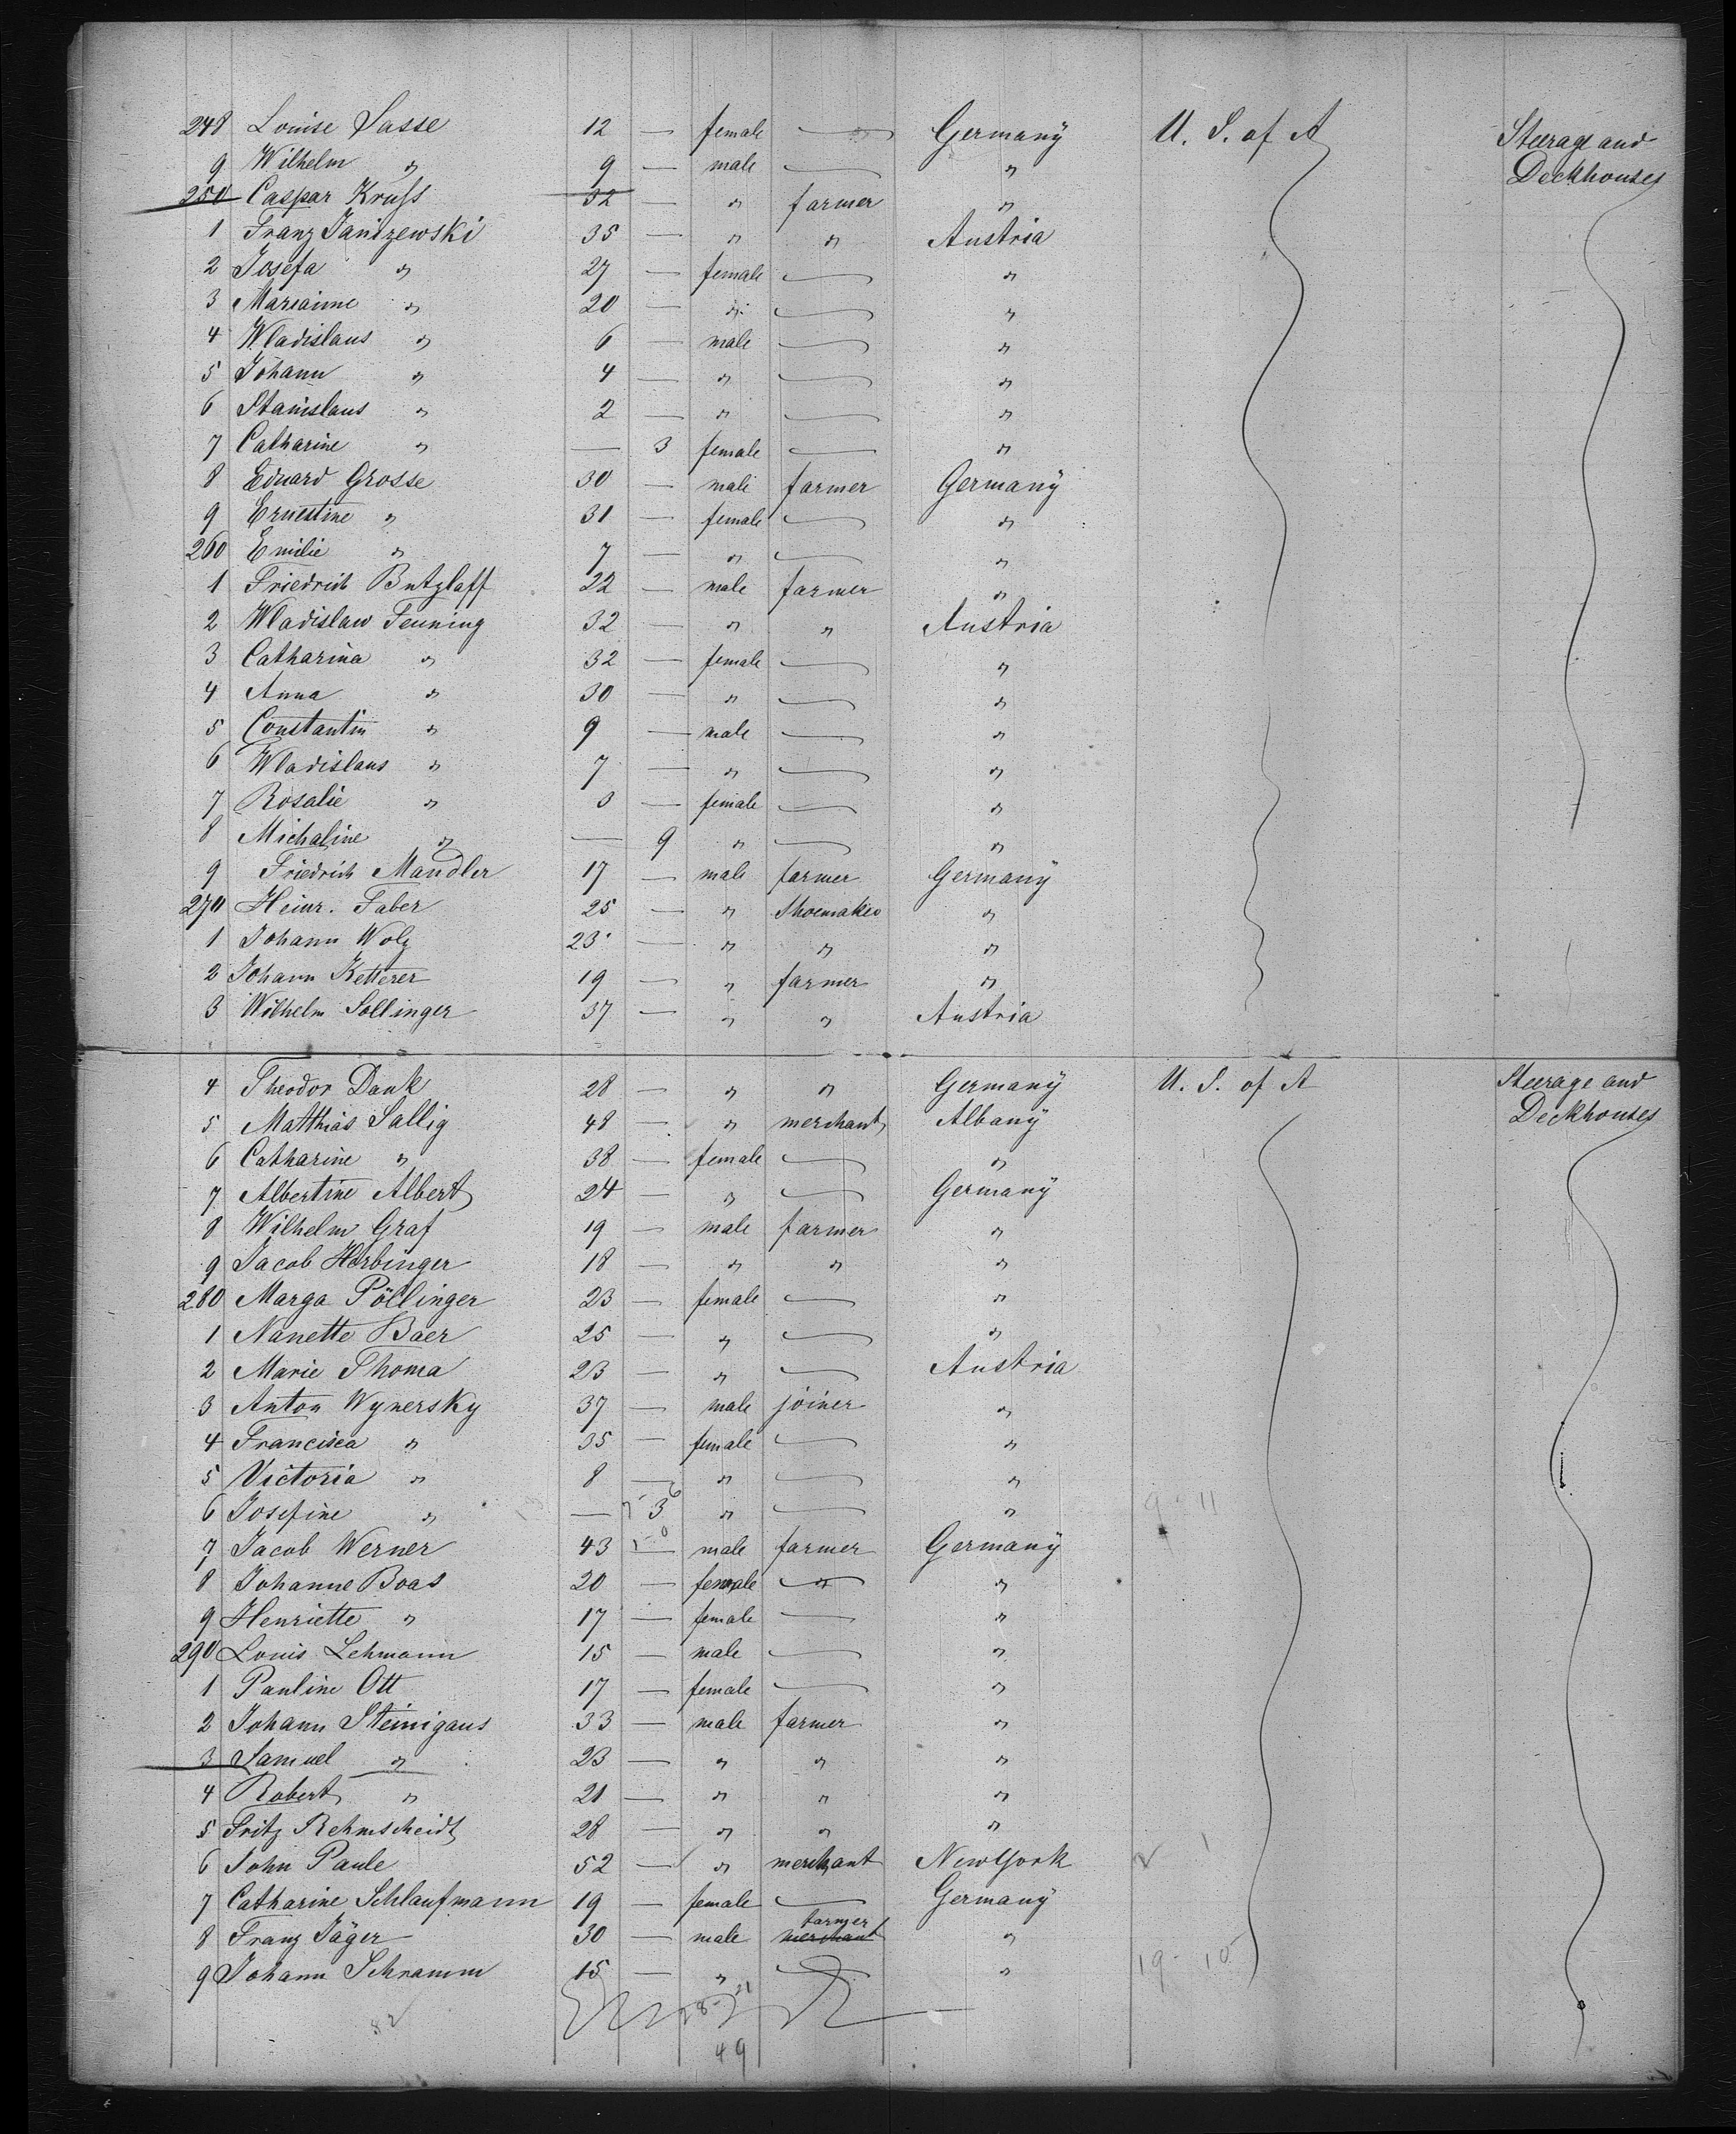 248 Louise Sasse 12 — female — Germany U. S. of A Steerage and
9 Wilhelm " 9 — male — " Deckhouses
250 Caspar Kruss 32 — " farmer "
1 Franz Janizewski 35 — " " Austria
2 Josefa " 27 — female — "
3 Marianne " 20 — " — "
4 Wladislaus " 6 — male — "
5 Johann " 4 — " — "
6 Stanislaus " 2 — " — "
7 Catharine " — 3 female — "
8 Eduard Grosse 30 — male farmer Germany
9 Ernestine " 31 — female — "
260 Emilie " 7 — " — "
1 Friedrich Butzlaff 22 — male farmer "
2 Wladislaw Tenning 32 — " " Austria
3 Catharina " 32 — female — "
4 Anna " 30 — " — "
5 Constantin " 9 — male — "
6 Wladislaus " 7 — " — "
7 Rosalie " 3 — female — "
8 Michaline " — 9 " — "
9 Friedrich Mandler 17 — male farmer Germany
270 Heinr. Faber 25 — " Shoemaker "
1 Johann Wolz 23 — " " "
2 Johann Ketterer 19 — " farmer "
3 Wilhelm Sollinger 37 — " " Austria
4 Theodor Dank 28 — " " Germany U. S. of A Steerage and
5 Matthias Sallig 48 — " merchant Albany Deckhouses
6 Catharine " 38 — female — "
7 Albertine Albert 24 — " — Germany
8 Wilhelm Graf 19 — male farmer "
9 Jacob Horbinger 18 — " " "
280 Marga Pöllinger 23 — female — "
1 Nanette Baer 25 — " — "
2 Marie Thoma 23 — " — Austria
3 Anton Wynersky 37 — male joiner "
4 Francisca " 35 — female — "
5 Victoria " 8 — " — "
6 Josefine " — 3 " — " 9 - 11
7 Jacob Werner 43 — male farmer Germany
8 Johanne Boas 20 — female " "
9 Henriette " 17 — female — "
290 Louis Lehmann 15 — male — "
1 Pauline Ott 17 — female — "
2 Johann Steinigans 33 — male farmer "
3 Samuel " 23 — " " "
4 Robert " 21 — " " "
5 Fritz Rehmscheidt 28 — " " "
6 John Paule 52 — " merchant NewYork
7 Catharine Schlaufmann 19 — female — Germany
8 Franz Jäger 30 — male merchant farmer "
9 Johann Schramm 15 — " — " 19 - 10
82
49